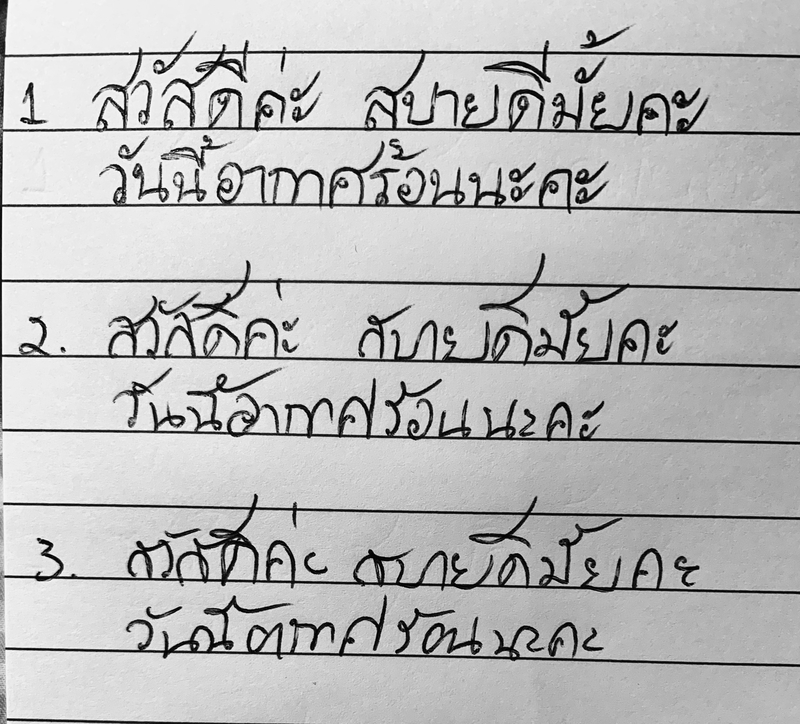 1 สวัสดีค่ะ สบายดีมั้ยคะ
วันนี้อากาศร้อนนะคะ
2. สวัสดีค่ะ สบายดีมั้ยคะ
วันนี้อากาศร้อนนะคะ
3. สวัสดีค่ะ สบายดีมั้ยคะ
วันนี้อากาศร้อนนะคะ